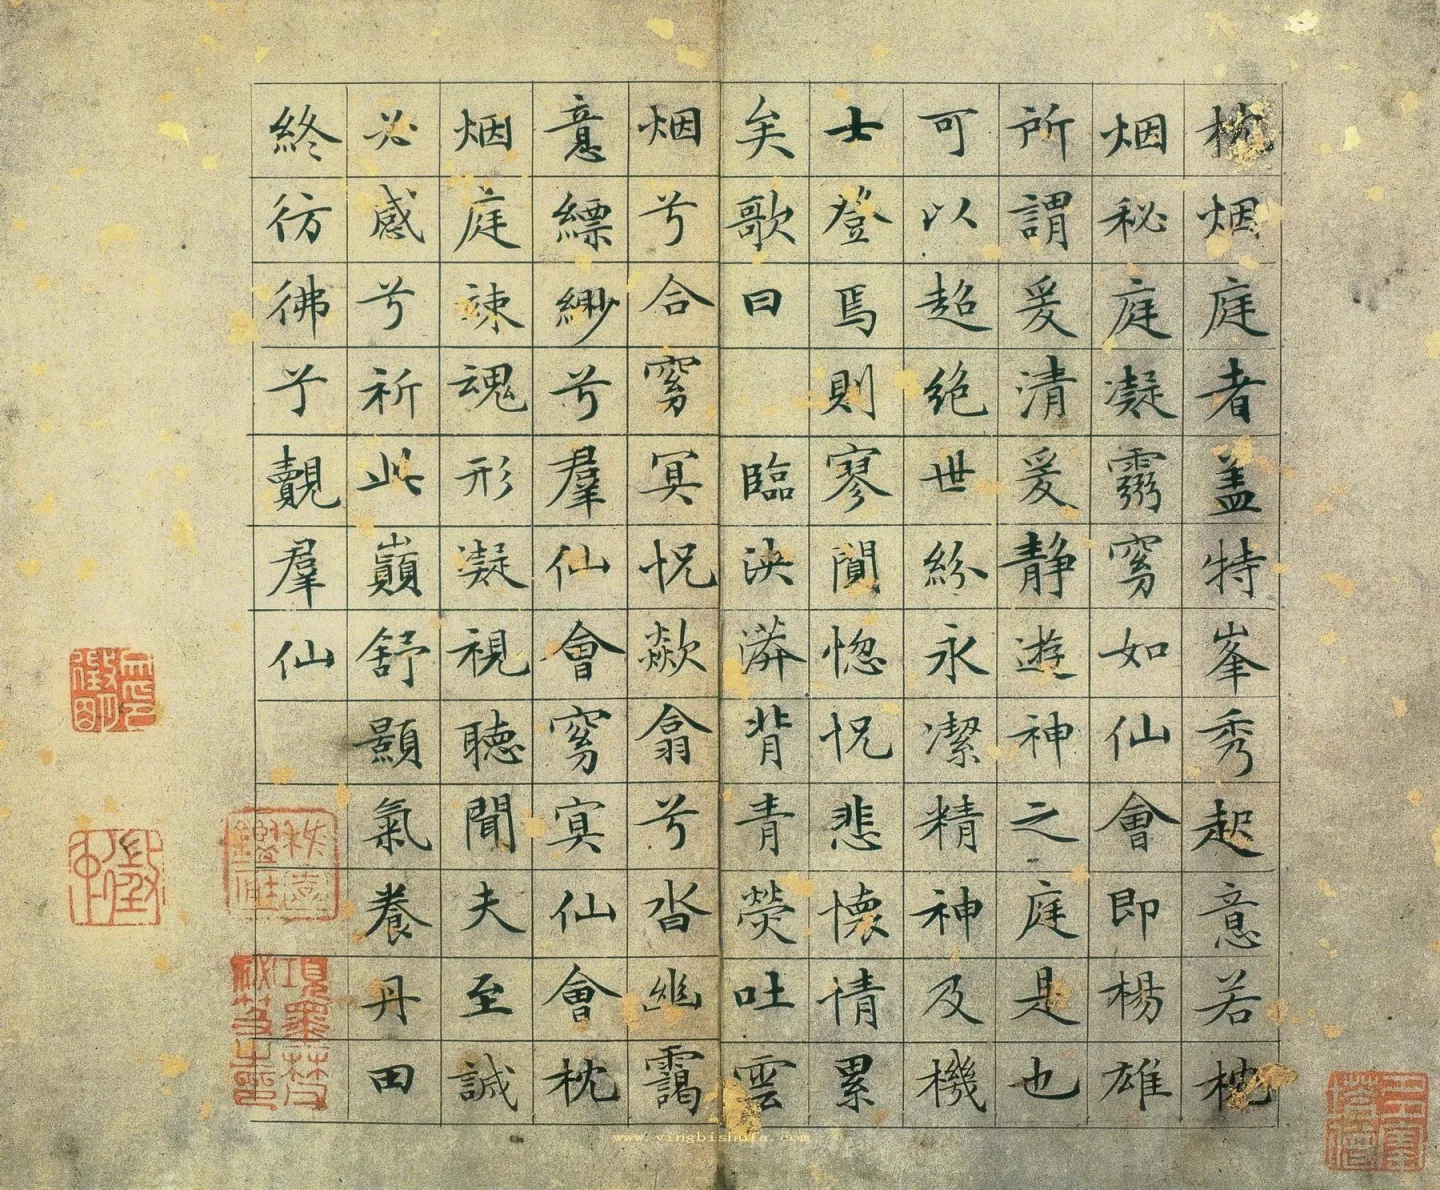 枕烟庭者盖特峯秀起意若枕
烟秘庭凝靈窅如仙會即楊雄
所謂爰清爰静遊神之庭是也
可以超絶世紛永潔精神及機
士登焉則寥閴惚怳悲懷情累
矣歌曰 臨泱漭背青熒吐雲
烟兮合窅冥怳歘翕兮沓幽靄
意縹緲兮羣仙會窅冥仙會枕
烟庭竦魂形凝視聽聞夫至誠
必感兮祈此巔舒顥氣養丹田
終彷彿兮覿羣仙
www.yingbishufa.com